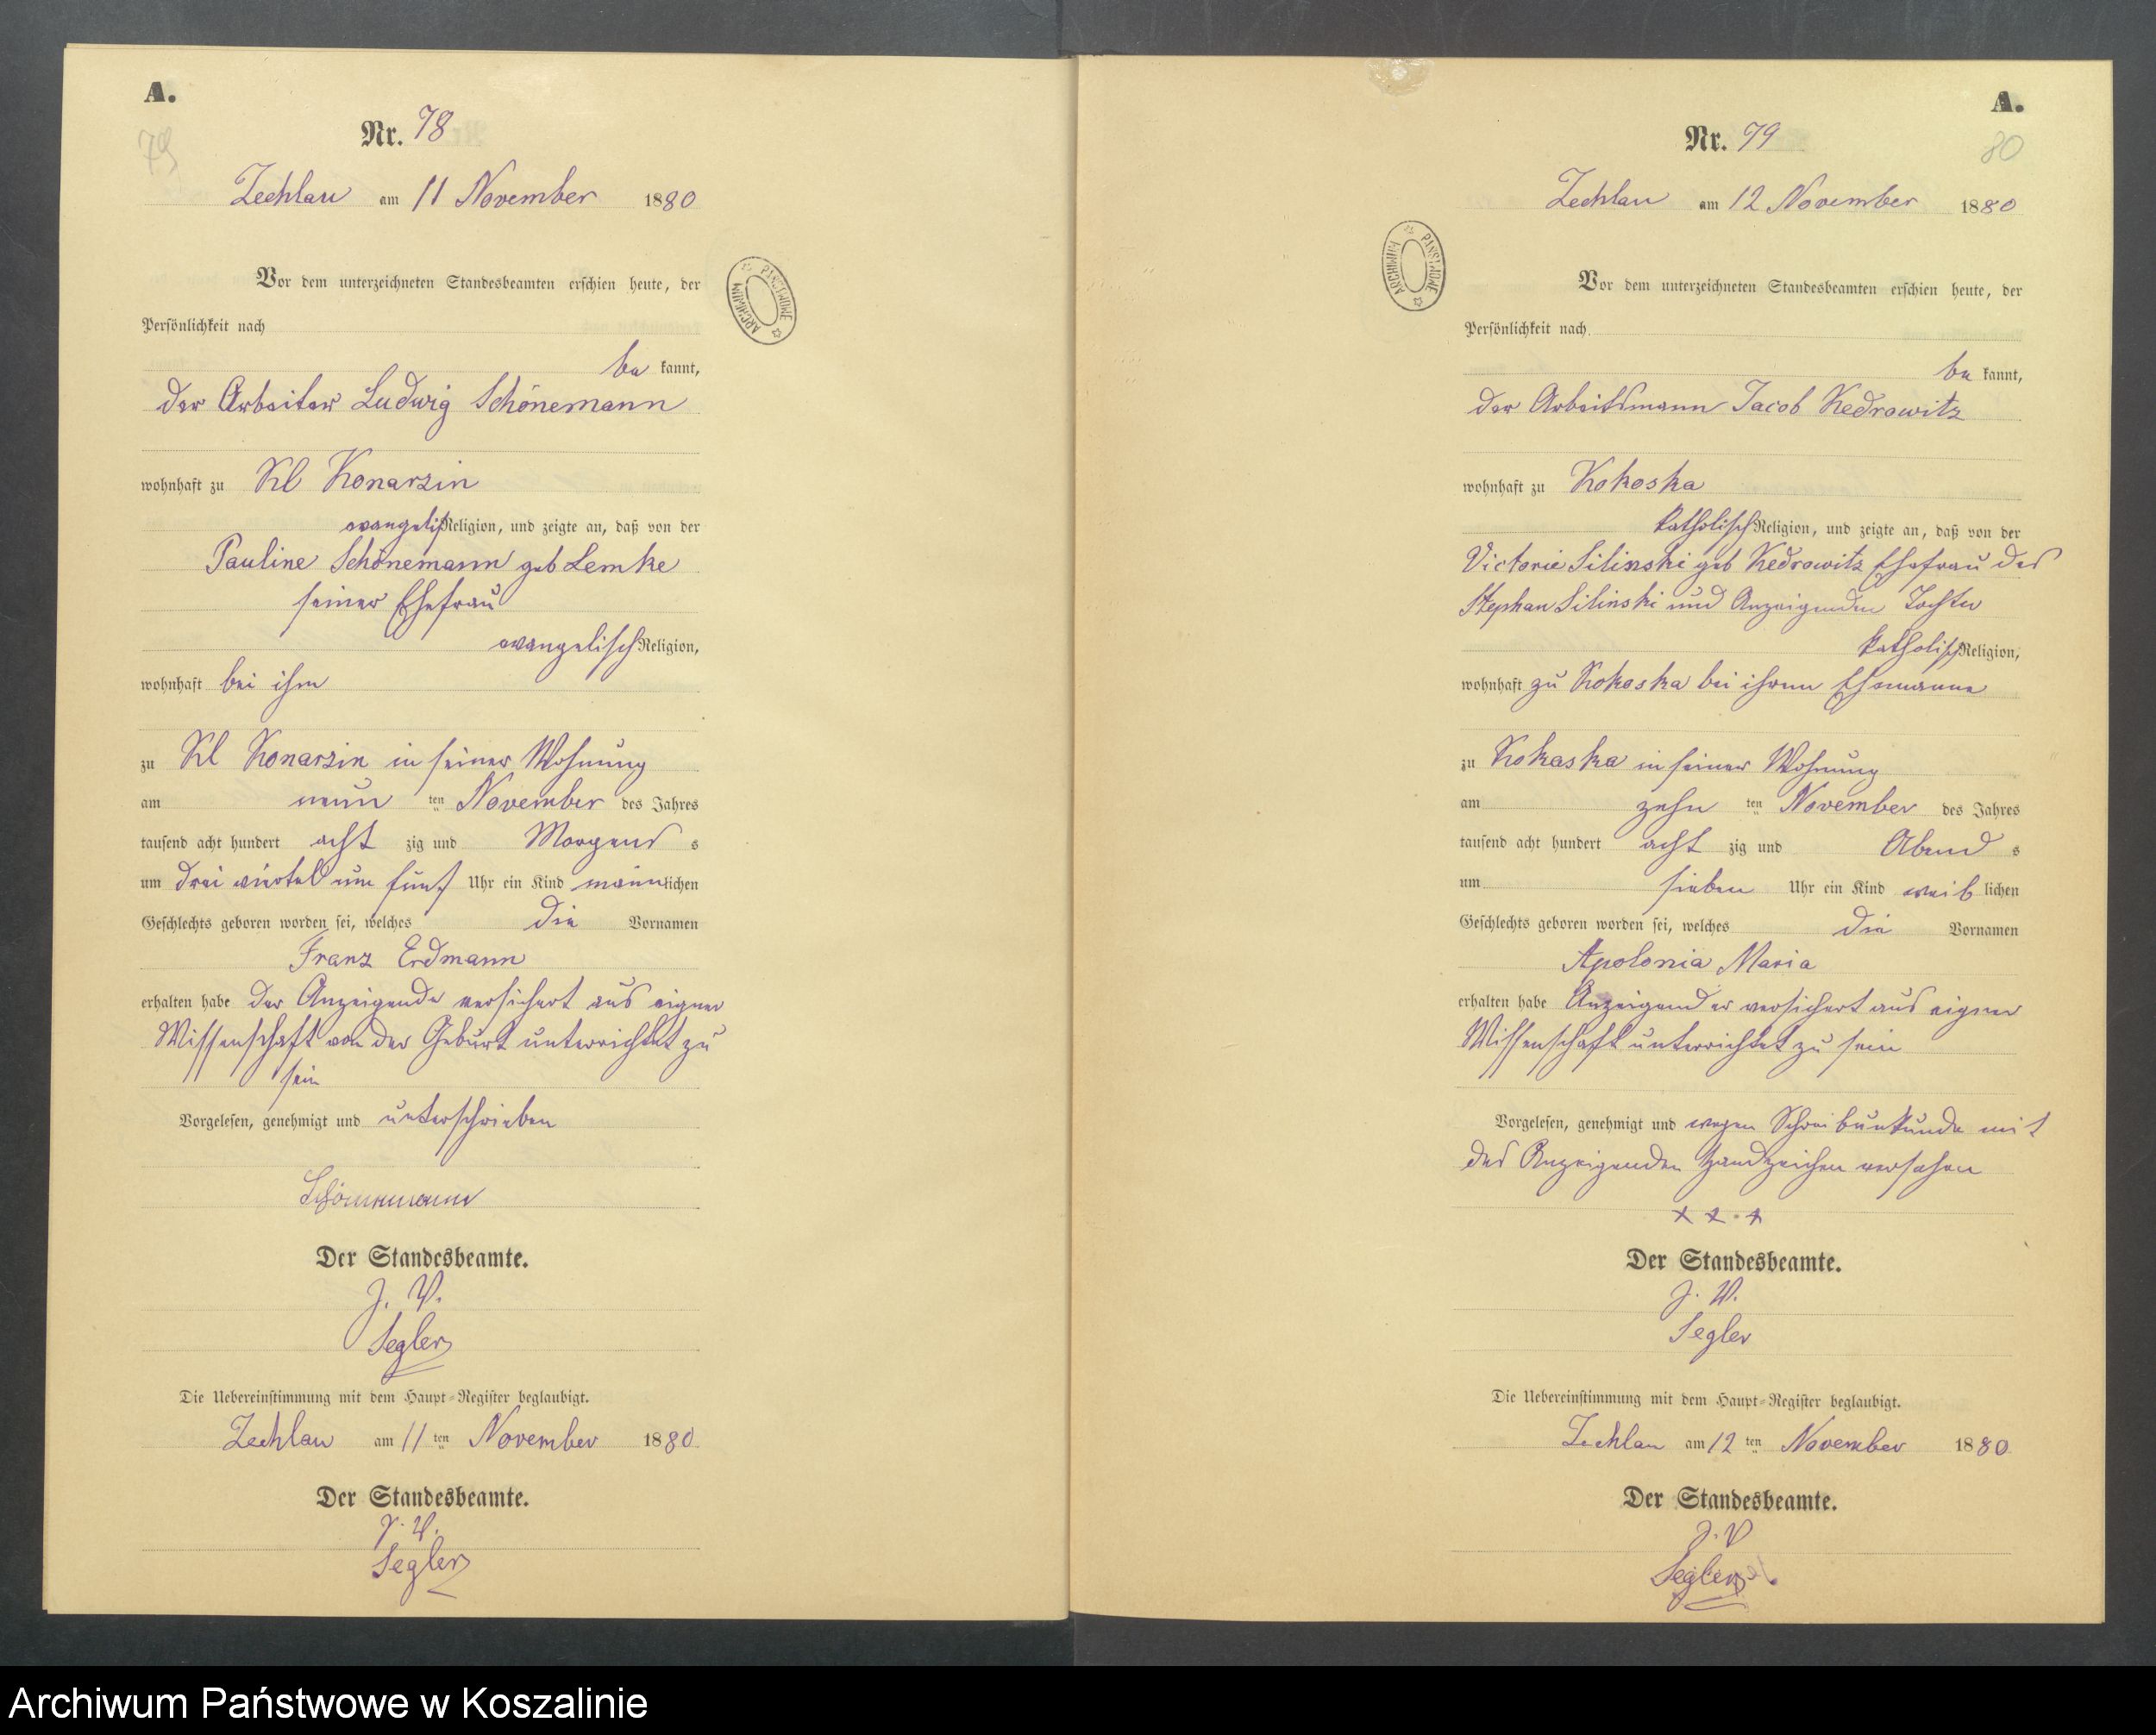 A.
79
Nr. 78
Zechlau am 11 November 1880
Vor dem unterzeichneten Standesbeamten erschien heute, der
Persönlichkeit nach
be kannt,
der Arbeiter Ludwig Schönemann
wohnhaft zu Kl Konarzin
evangelisch Religion, und zeigte an, daß von der
Pauline Schönemann geb Lemke
seiner Ehefrau
evangelisch Religion,
wohnhaft bei ihm
zu Kl Konarzin in seiner Wohnung
am neun ten November des Jahres
tausend acht hundert acht zig und Morgens s
um drei viertel um fünf Uhr ein Kind männlichen
Geschlechts geboren worden sei, welches die Vornamen
Franz Erdmann
erhalten habe der Anzeigende versichert aus eigner
Wissenschaft von der Geburt unterrichtet zu
sein
Vorgelesen, genehmigt und unterschrieben
Schönemann
Der Standesbeamte.
J. V.
Segler
Die Uebereinstimmung mit dem Haupt-Register beglaubigt.
Zechlau am 11 ten November 1880
Der Standesbeamte.
J. V.
Segler
ARCHIWUM PAŃSTWOWE
A.
80
Nr. 79
Zechlau am 12 November 1880
Vor dem unterzeichneten Standesbeamten erschien heute, der
Persönlichkeit nach
be kannt,
der Arbeitsmann Jacob Kedrowitz
wohnhaft zu Kokoska
katholisch Religion, und zeigte an, daß von der
Victorie Silinski geb Kedrowitz Ehefrau des
Stephan Silinski und Anzeigenden Tochter
katholisch Religion,
wohnhaft zu Kokoska bei ihrem Ehemanne
zu Kokaska in seiner Wohnung
am zehn ten November des Jahres
tausend acht hundert acht zig und Abend s
um sieben Uhr ein Kind weib lichen
Geschlechts geboren worden sei, welches die Vornamen
Apolonia Maria
erhalten habe Anzeigender versichert aus eigner
Wissenschaft unterrichtet zu sein
Vorgelesen, genehmigt und wegen Schreibunkunde mit
des Anzeigenden Handzeichen versehen
x x x
Der Standesbeamte.
J. V.
Segler
Die Uebereinstimmung mit dem Haupt-Register beglaubigt.
Zechlau am 12 ten November 1880
Der Standesbeamte.
J. V
Segler
ARCHIWUM PAŃSTWOWE
Archiwum Państwowe w Koszalinie